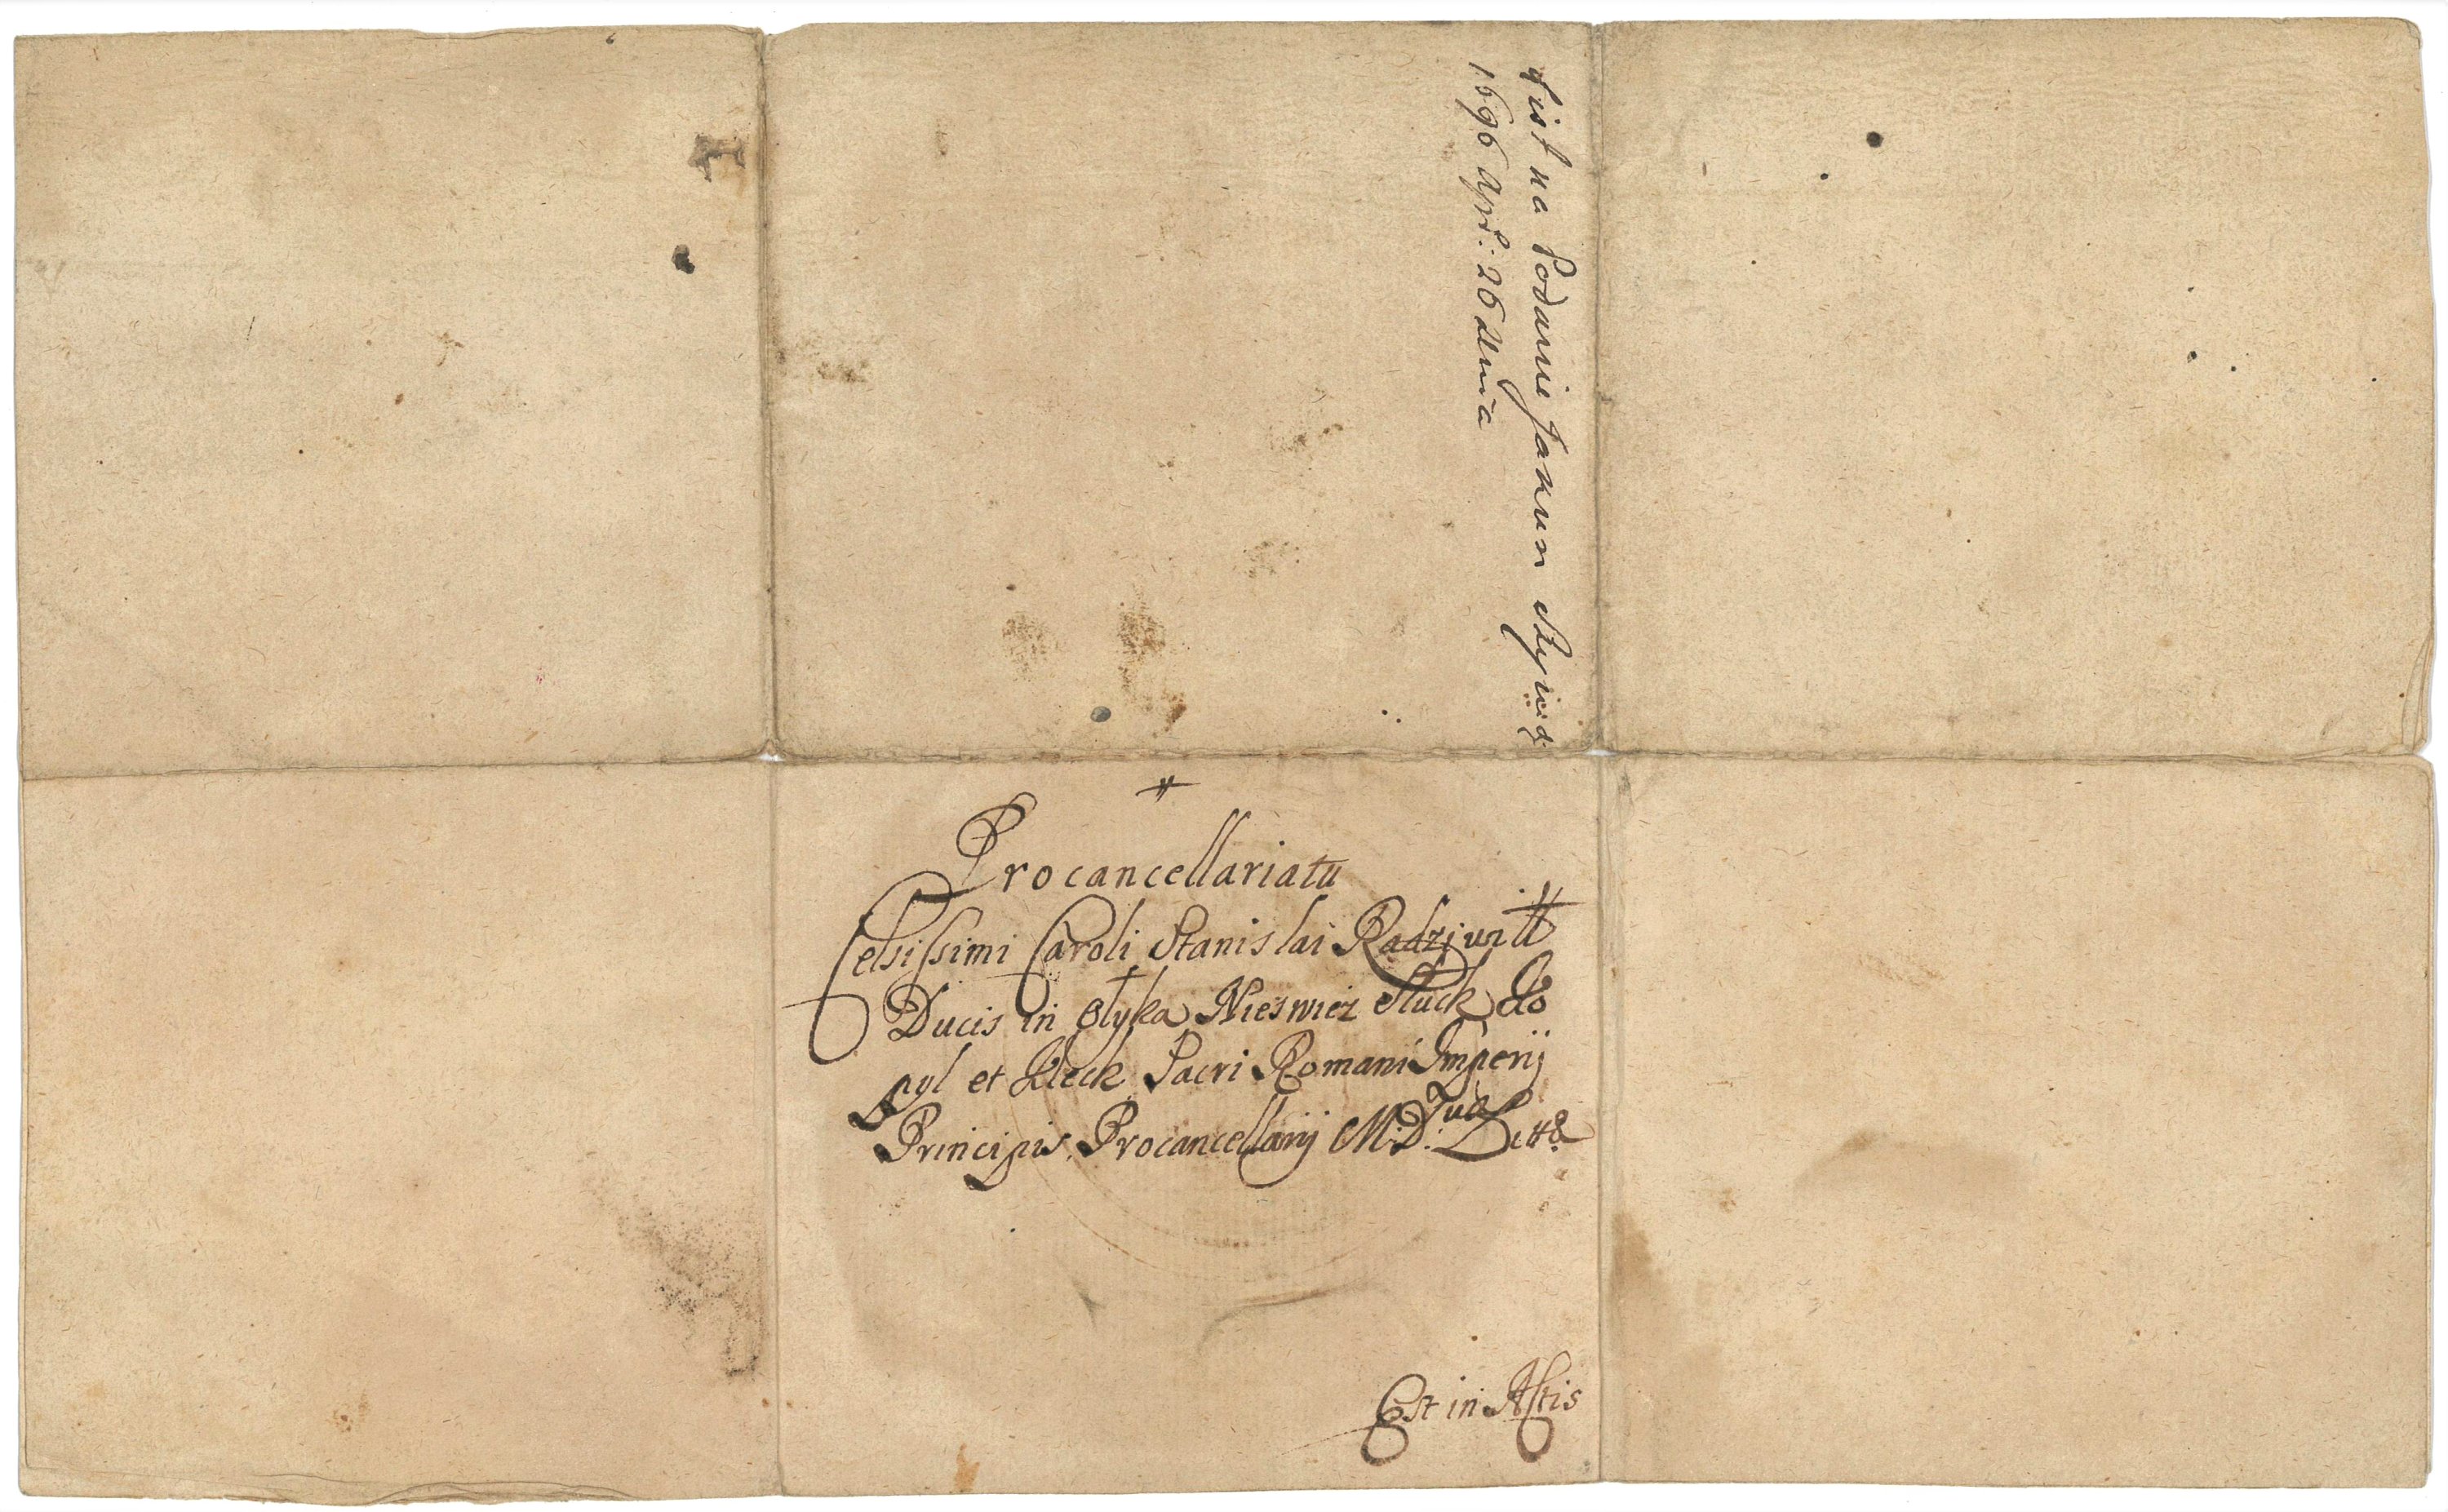 List na Podanie Jakun
1696 Apr: 26 dnia
Procancellariatu
Celsissimi Caroli Stanislai Radziwill
Ducis in Olyka Nieswiez Sluck Ko
pyl et Kleck Sacri Romani Imperij
Principis Procancellarij M: D: Litt&
Est in Actis